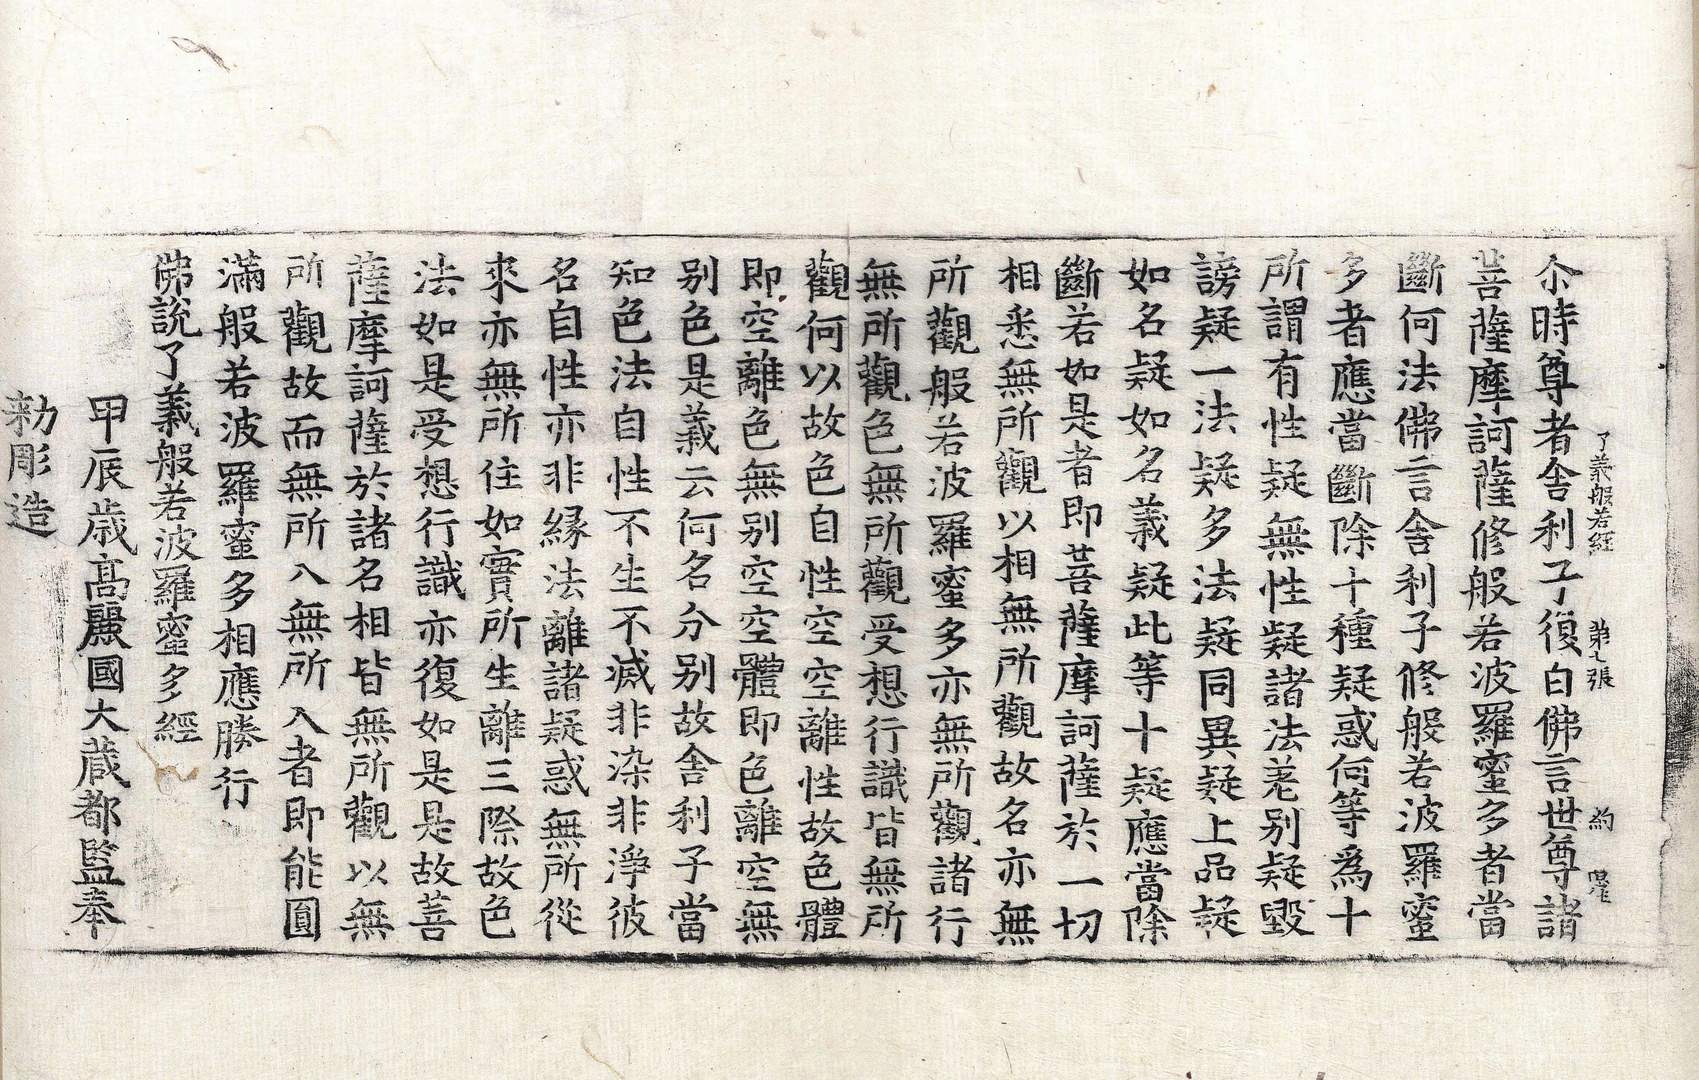 了義般若經 第七張 約
尒時尊者舍利子復白佛言世尊諸
菩薩摩訶薩修般若波羅蜜多者當
斷何法佛言舍利子修般若波羅蜜
多者應當斷除十種疑惑何等爲十
所謂有性疑無性疑諸法差別疑毀
謗疑一法疑多法疑同異疑上品疑
如名疑如名義疑此等十疑應當除
斷若如是者即菩薩摩訶薩於一切
相悉無所觀以相無所觀故名亦無
所觀般若波羅蜜多亦無所觀諸行
無所觀色無所觀受想行識皆無所
觀何以故色自性空空離性故色體
即空離色無別空空體即色離空無
別色是義云何名分別故舍利子當
知色法自性不生不滅非染非淨彼
名自性亦非緣法離諸疑惑無所從
來亦無所住如實所生離三際故色
法如是受想行識亦復如是是故菩
薩摩訶薩於諸名相皆無所觀以無
所觀故而無所入無所入者即能圓
滿般若波羅蜜多相應勝行
佛說了義般若波羅蜜多經
甲辰歲高麗國大藏都監奉
勑彫造